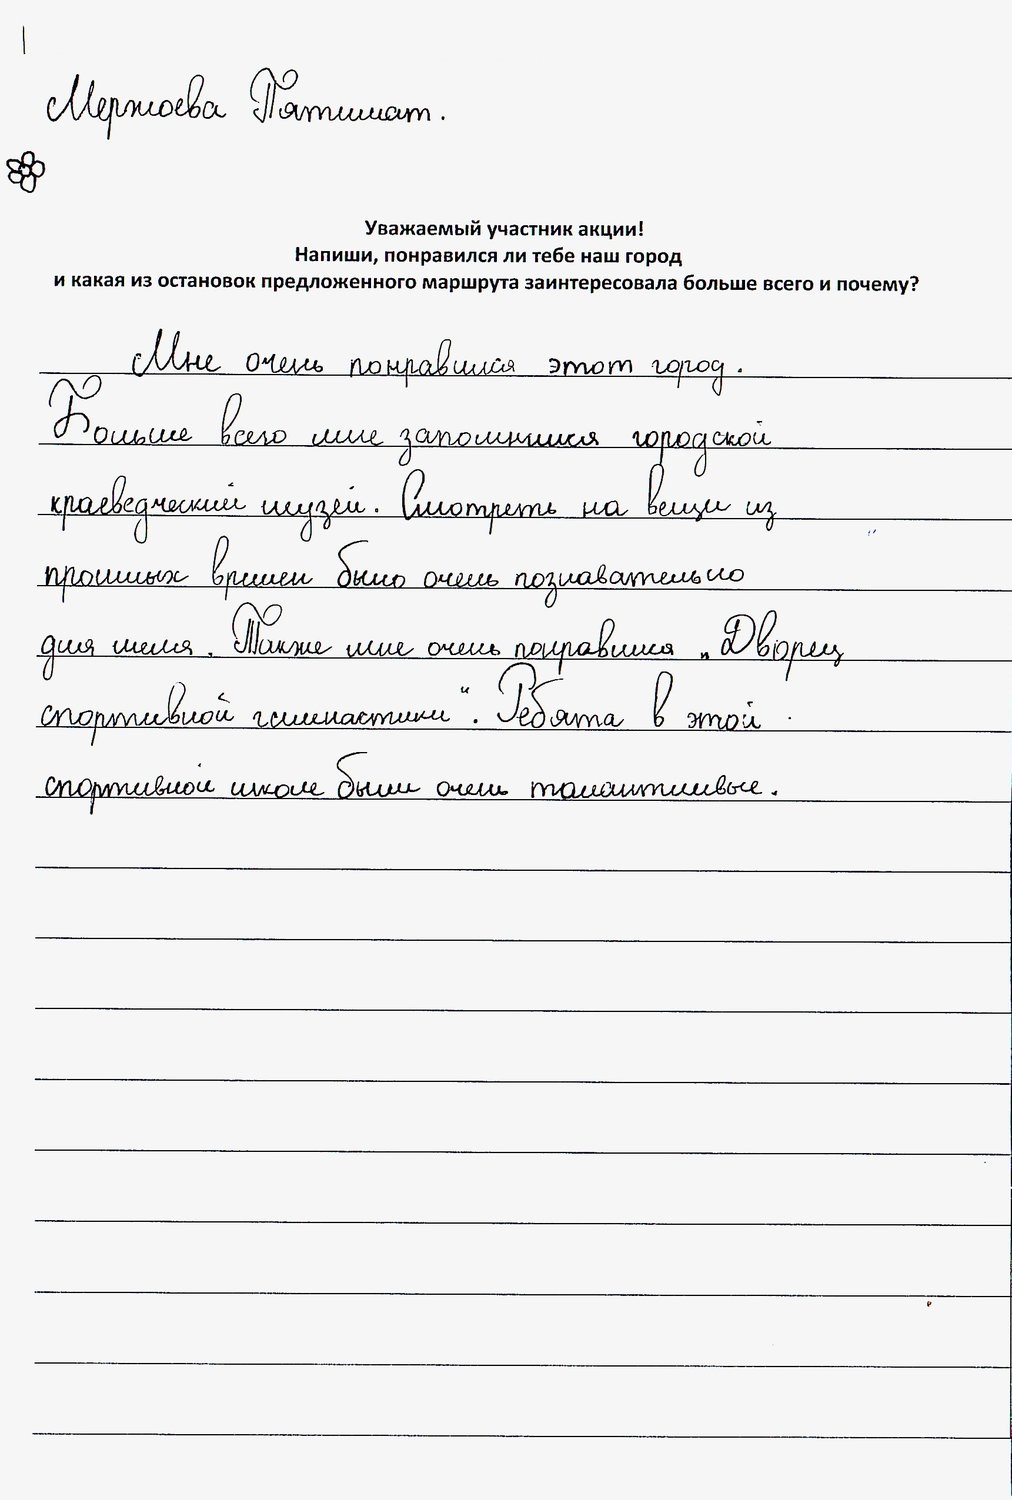 Мержоева Пятимат.
Уважаемый участник акции!
Напиши, понравился ли тебе наш город
и какая из остановок предложенного маршрута заинтересовала больше всего и почему?
Мне очень понравился этот город.
Больше всего мне запомнился городской
краеведческий музей. Смотреть на вещи из
прошлых времен было очень познавательно
для меня. Также мне очень понравился „Дворец
спортивной гимнастики“. Ребята в этой
спортивной школе были очень талантливые.